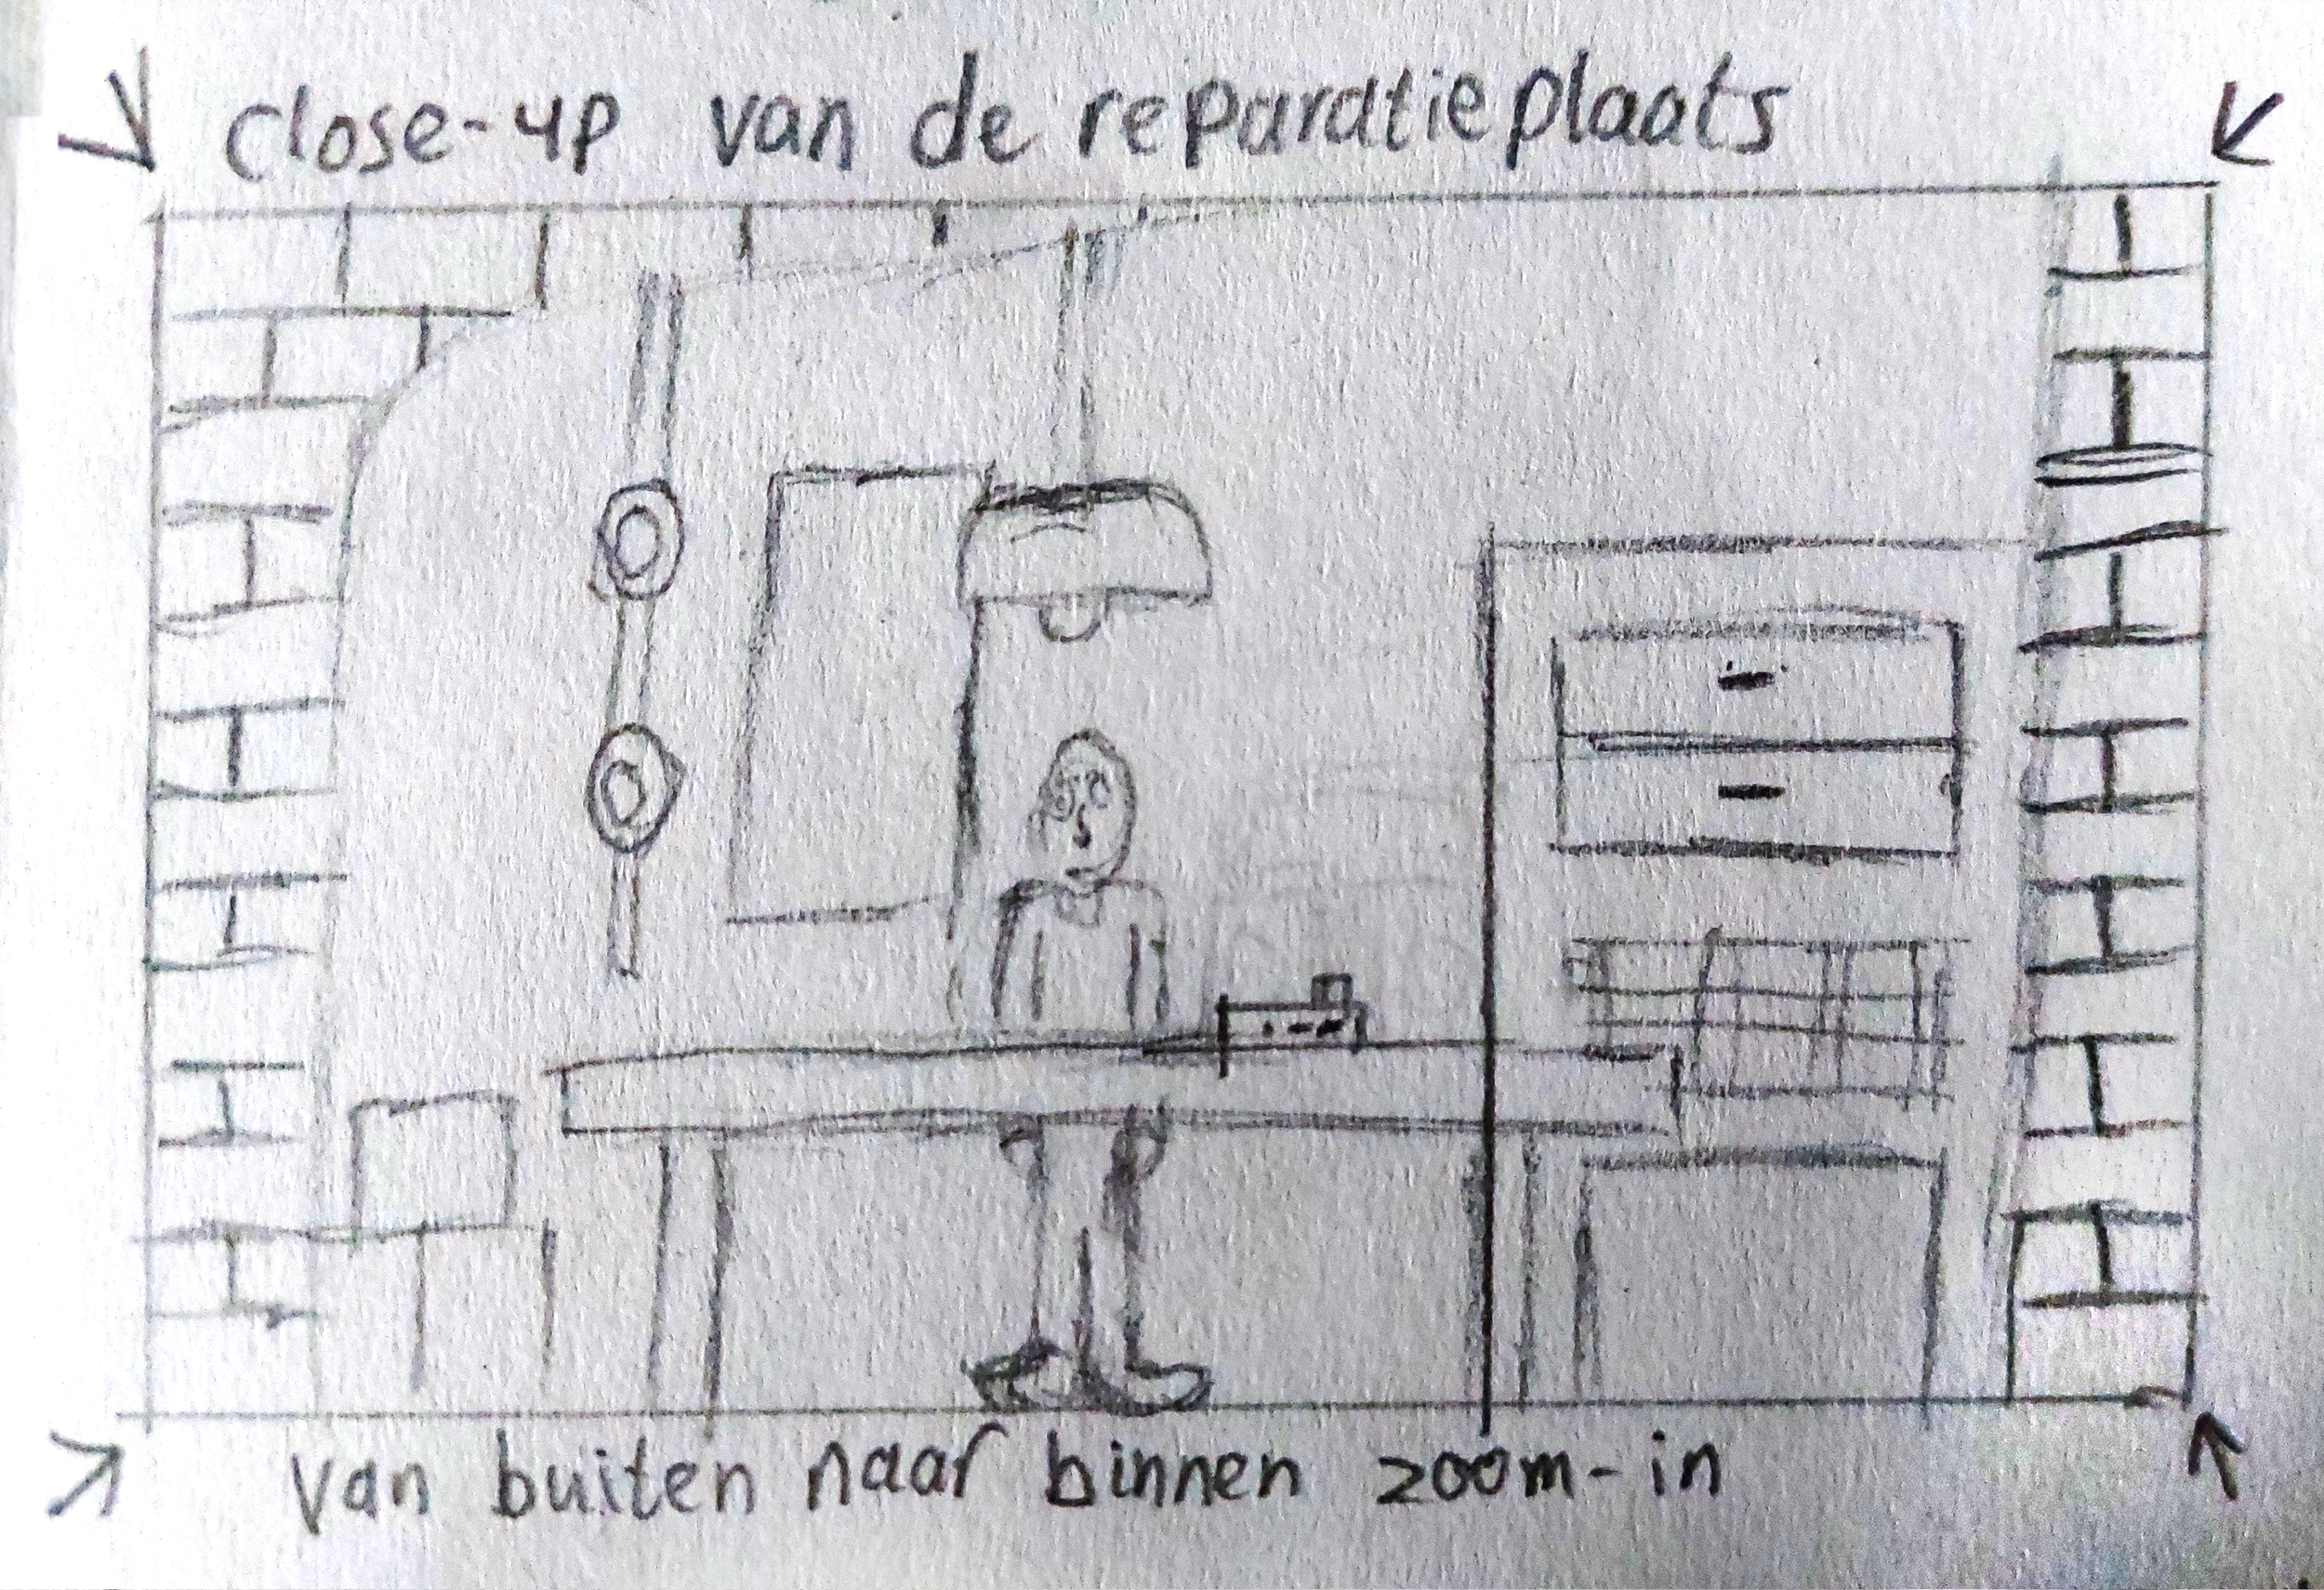 close-up van de reparatieplaats
van buiten naar binnen zoom-in